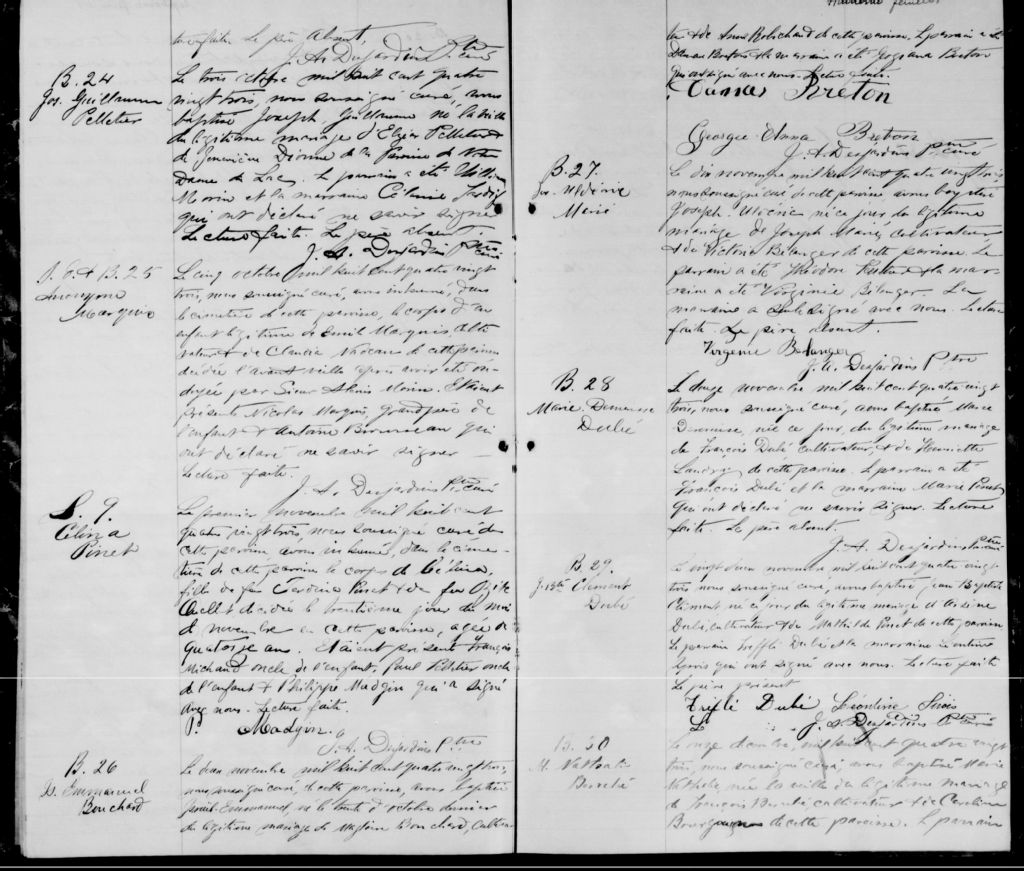 ture faite. Le père absent.
J. A. Desjardins Ptre curé
B. 24
Jos. Guillaume
Pelletier
Le trois octobre mil huit cent quatre
vingt trois, nous soussigné curé, avons
baptisé Joseph, Guillaume né la veille
du légitime mariage d'Elzéar Pelletier &
de Geneviève Dionne de la Paroisse de Notre
Dame du Lac. Le parrain a été
Morin et la marraine Célanire
qui ont déclaré ne savoir signer
Lecture faite. Le père absent.
J. A. Desjardins Ptre curé
B. 25
Anonyme
Marquis
Le cinq octobre mil huit cent quatre vingt
trois, nous soussigné curé, avons inhumé, dans
le cimetière de cette paroisse, le corps d'un
enfant légitime de Marquis culti
vateur & de Claudia de cette paroisse
décédé l'avant veille après avoir été on-
doyé par Sieur Morin. Etaient
présents Nicolas Marquis, grand père de
l'enfant & Antoine qui
ont déclaré ne savoir signer —
Lecture faite.
J. A. Desjardins Ptre Curé
S. 9.
Célina
Pinet
Le premier novembre mil huit cent
quatre vingt trois, nous soussigné curé de
cette paroisse avons inhumé, dans le cime-
tière de cette paroisse le corps de Célina,
fille de feu Pinet & de feu
Ouellet décédée le trentième jour du mois
d novembre en cette paroisse, agée de
quatorze ans. Etaient présents François
Michaud oncle de l'enfant, Paul Pelletier oncle
de l'enfant & Philippe Madgin qui a signé
avec nous. Lecture faite.
P. Madgin.
J. A. Desjardins Ptre
B. 26
Emmanuel
Bouchard
Le deux novembre mil huit cent quatre vingt trois,
nous soussigné curé, de cette paroisse, avons baptisé
Emmanuel, né le trente d'octobre dernier
du légitime mariage de Magloire Bouchard, cultiva-
teur & de Anna Robichaud de cette paroisse. Le parrain a été
Damas Breton & la marraine a été Georgiana Breton
qui ont signé avec nous. Lecture faite.
Damas Breton
Georgie Anna Breton
J. A. Desjardins Ptre curé
B. 27.
Jos. Uldéric
Marié
Le dix novembre mil huit cent quatre vingt trois
nous soussigné curé de cette paroisse avons baptisé
Joseph. Uldéric né ce jour du légitime
mariage de Joseph Marié, cultivateur
& de Victoire Bélanger de cette paroisse. Le
parrain a été Théodore & la mar-
raine a été Virginie Bélanger. La
marraine a seule signé avec nous. Lecture
faite. Le père absent.
Virginie Belanger
J. A. Desjardins Ptre
B. 28
Marie Démerise
Dubé
Le douze novembre mil huit cent quatre vingt
trois, nous soussigné curé, avons baptisé Marie
Démerise, née ce jour, du légitime mariage
de François Dubé cultivateur, & de Henriette
Landry de cette paroisse. Le parrain a été
François Dubé et la marraine Marie Pinet
qui ont déclaré ne savoir signer. Lecture
faite. Le père absent.
J. A. Desjardins Ptre curé
B. 29.
J. Bte Clément
Dubé
Le vingt deux novembre mil huit cent quatre vingt
trois nous soussigné curé, avons baptisé Jean Baptiste
Clément né ce jour du légitime mariage d'Arsène
Dubé, cultivateur & de Mathilde Pinet de cette paroisse
Le parrain Trefflé Dubé et la marraine Léontine
qui ont signé avec nous. Lecture faite
Le père présent
Trifflé Dubé Léontine
J. A. Desjardins Ptre Curé
B. 30
M. Nathalie
Bérubé
Le onze décembre, mil huit cent quatre vingt
trois, nous soussigné curé, avons baptisé Marie
Nathalie, née la veille du légitime mariage
de François Bérubé, cultivateur & de Caroline
de cette paroisse. Le parrain